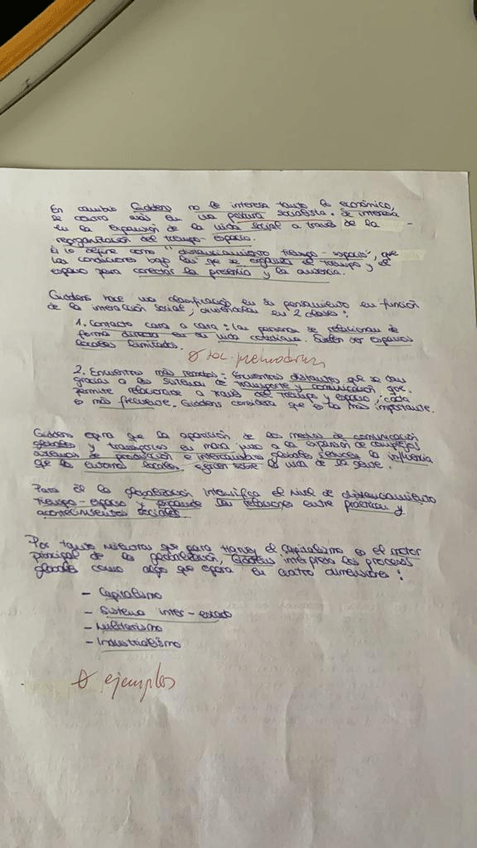 En cambio Giddens no le interesa tanto lo económico,
se centra más en una postura socialista. Se interesa
en la expansión de la vida social a través de la
reorganización del tiempo-espacio.
Él lo define como "distanciamiento tiempo-espacio", que
las condiciones bajo las que se organiza el tiempo y el
espacio para conectar la presencia y la ausencia.
Giddens hace una clasificación en su pensamiento en función
de la interacción social, diferenciadas en 2 clases:
1. Contacto cara a cara: las personas se relacionan de
forma directa en su vida cotidiana. Suelen ser espacios
sociales limitados.
soc. premodernas
2. Encuentros más remotos: Encuentros distantes que se dan
gracias a los sistemas de transporte y comunicación que
permite relacionarse a través del tiempo y espacio, cada
es más frecuente. Giddens considera que es la más importante.
Giddens opina que la aparición de los medios de comunicación
globales y transportes en masa junto a la expansión de complejos
sistemas de producción e intercambios globales reducen la influencia
que los entornos locales ejercen sobre la vida de la gente.
Para él la globalización intensifica el nivel de distanciamiento
tiempo-espacio y expande las relaciones entre prácticas y
acontecimientos sociales.
Por tanto mientras que para el capitalismo es el motor
principal de la globalización, Giddens interpreta los procesos
globales como algo que opera en cuatro dimensiones:
- Capitalismo
- Sistema inter-estado
- Militarismo
- Industrialismo
ejemplos